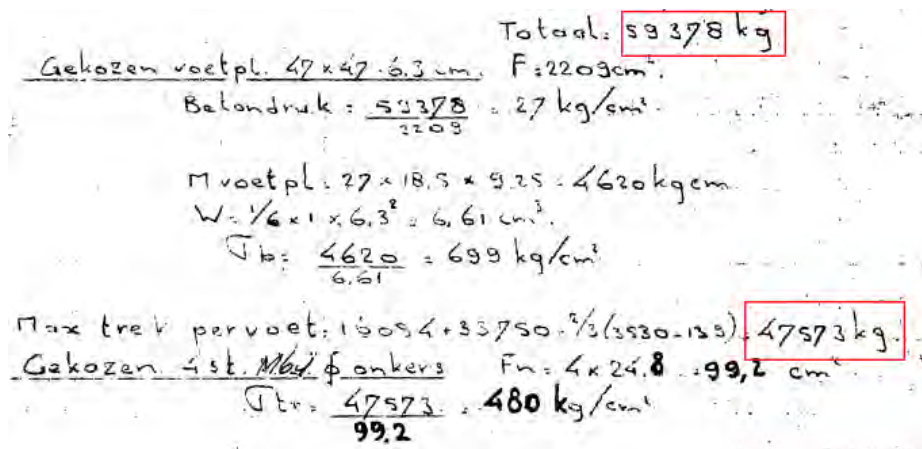 Totaal: 59378 kg
Gekozen voetpl. 47 x 47 . 6.3 cm. F = 2209 cm².
Betondruk = 59378 / 2209 = 27 kg/cm²
M voetpl. = 27 x 18,5 x 9.25 = 4620 kgcm
W = 1/6 x 1 x 6,3² = 6,61 cm³.
σb = 4620 / 6,61 = 699 kg/cm²
Max trek per voet: + 33750 - 2/3 (3530 - ) = 47573 kg.
Gekozen 4 st. M64 φ ankers Fn = 4 x 24.8 = 99,2 cm²
σtr = 47573 / 99.2 = 480 kg/cm²